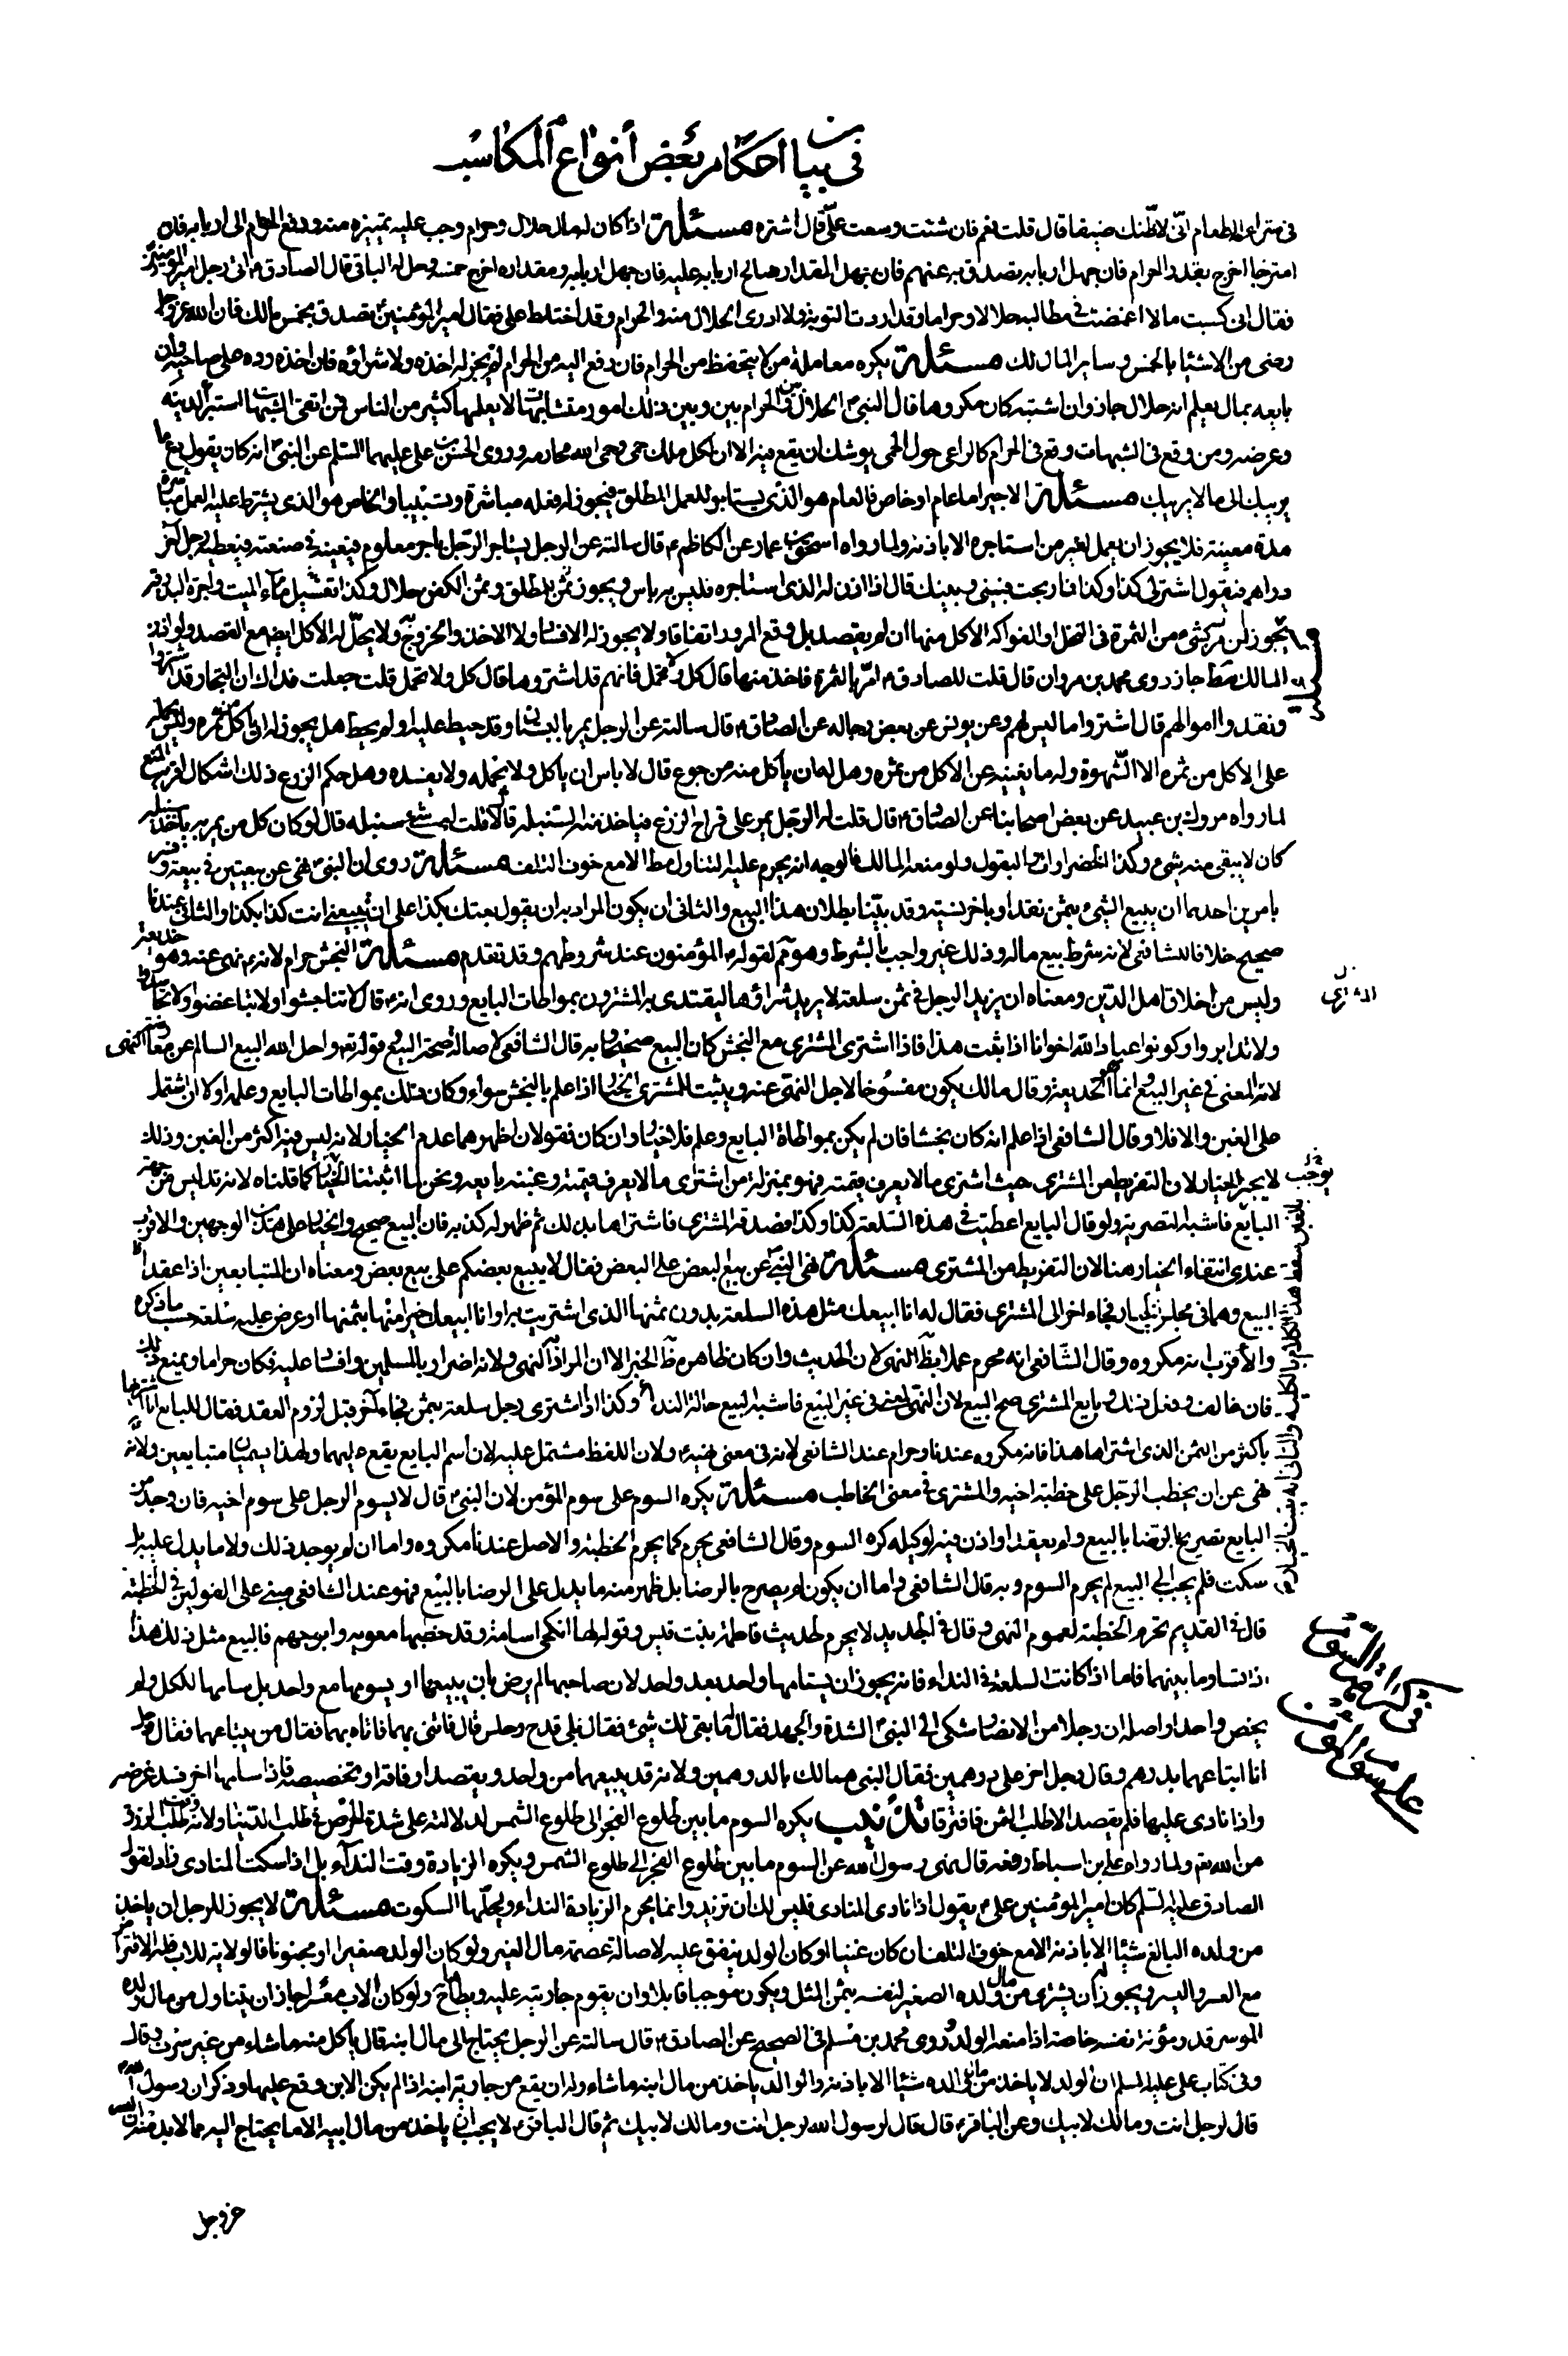 في بيان احكام بعض أنواع المكاسب
في شراء الطعام انّى لاظنّك ضيقا قال قلت نعم فان شئت وسعت علىّ قال اشتره مسئلة اذا كان له مال حلال وحرام وجب عليه تميزه منه ودفع الحرام الى اربابه فان
امتزجا اخرج بقدر الحرام فان جهل اربابه تصدق به عنهم فان جهل المقدار صالح اربابه عليه فان جهل اربابه ومقداره اخرج خمسه وحل له الباقي قال الصادق ع اتى رجل امير المؤمنين ع
فقال انى كسبت مالا اغمضت في مطالبه حلالا وحراما وقد اردت التوبة ولا ادرى الحلال منه والحرام وقد اختلط على فقال امير المؤمنين ع تصدق بخمس مالك فان الله عز وجل
رضى من الاشياء بالخمس وساير المال لك مسئلة يكره معاملة من لا يتحفظ من الحرام فان دفع اليه من الحرام لم يجز له اخذه ولا شراؤه فان اخذه رده على صاحبه وان
بايعه بمال يعلم انه حلال جاز وان اشتبه كان مكروها قال النبي ص الحلال بين والحرام بين وبين ذلك امور متشابهات لا يعلمها كثير من الناس فمن اتقى الشبهات استبرأ لدينه
وعرضه ومن وقع في الشبهات وقع في الحرام كالراعي حول الحمى يوشك ان يقع فيه الا ان لكل ملك حمى وحمى الله محارمه وروى الحسن بن على عليهما السلم عن النبي ص انه كان يقول دع ما
يريبك الى ما لا يريبك مسئلة الاجير اما عام او خاص فالعام هو الذي يستاجر للعمل المطلق فيجوز له فعله مباشرة وتسبيبا والخاص هو الذي يشترط عليه العمل مباشرة
مدة معينة فلا يجوز ان يعمل لغير من استاجره الا باذنه ولما رواه اسحق بن عمار عن الكاظم ع قال سالته عن الرجل يستاجر الرجل باجر معلوم فيبعثه في ضيعته فيعطيه رجل اخر
دراهم فيقول اشتر لي كذا وكذا فما ربحت فبيني وبينك قال اذا اذن له الذي استاجره فليس به باس
يجوز لمن مر بشيء من الثمرة في النخل او الفواكه الاكل منها ان لم يقصد بل وقع المرور اتفاقا ولا يجوز له الافساد ولا الاخذ والخروج به ولا يحلّ له الاكل ايضا مع القصد ولو اذن
المالك مط جاز روى محمد بن مروان قال قلت للصادق ع امرّ بالثمرة فاخذ منها قال كل ولا تحمل قلت فانهم قد اشتروها قال كل ولا تحمل قلت جعلت فداك ان التجار قد اشتروها
ونقدوا اموالهم قال اشتروا ما ليس لهم وعن يونس عن بعض رجاله عن الصادق ع قال سالته عن الرجل يمر بالبستان وقد حيط عليه او لم يحط هل يجوز له ان ياكل من ثمره وليس يحمله
على الاكل من ثمره الا الشهوة وله ما يغنيه عن الاكل من ثمره وهل له ان ياكل منه من جوع قال لا باس ان ياكل ولا يحمله ولا يفسده وهل حكم الزرع ذلك اشكال اقربه المنع
لما رواه مروك بن عبيد عن بعض اصحابنا عن الصادق ع قال قلت له الرجل يمر على قراح الزرع فياخذ منه السنبلة قال لا قلت اي شئ سنبلة قال لو كان كل من يمر به ياخذ سنبلة
كان لا يبقى منه شيء وكذا الخضراوات والبقول ولو منعه المالك فالوجه انه يحرم عليه التناول مطا الا مع خوف التلف مسئلة روى ان النبي ص نهى عن بيعتين في بيعة وفسر
بامرين احدهما ان يبيع الشيء بثمن نقدا وباخر نسية وقد بيّنا بطلان هذا البيع والثاني ان يكون المراد به ان يقول بعتك كذا على ان تبيعني انت كذا بكذا والثاني عندنا
صحيح خلافا للشافعي لانه شرط بيع ماله وذلك غير واجب بالشرط وهو مم لقوله ع المؤمنون عند شروطهم وقد تقدم مسئلة النجش حرام لانه ع نهى عنه وهو خديعة
وليس من اخلاق اهل الدين ومعناه ان يزيد الرجل في ثمن سلعة لا يريد شراؤها ليقتدى به المشترون بمواطات البايع وروى انه ع قال لا تناجشوا ولا تباغضوا ولا تحاسدوا
ولا تدابروا وكونوا عباد الله اخوانا اذا ثبت هذا فاذا اشترى المشترى مع النجش كان البيع صحيحا وبه قال الشافعي لاصالة صحة البيع وقوله تع واحل الله البيع السالم عن معارضة النهى
لانه المعنى في غير البيع وانما هو الخديعة وقال مالك يكون مفسوخا لاجل النهى عنه ويثبت للمشترى الخيار اذا علم بالنجش سواء كان ذلك بمواطات البايع وعلمه او لا ان اشتمل
على الغبن والا فلا وقال الشافعي اذا علم انه كان نجشا فان لم يكن بمواطاة البايع وعلمه فلا خيار وان كان فقولان اظهرهما عدم الخيار لانه ليس فيه اكثر من الغبن وذلك
لا يوجب الخيار لان التفريط من المشترى حيث اشترى ما لا يعرف قيمته فهو بمنزلة من اشترى ما لا يعرف قيمته وغبنه بايعه ونحن لما اثبتنا الخيار كما قلناه لانه تدليس من جهة
البايع فاشبه التصرية ولو قال البايع اعطيت في هذه السلعة كذا وكذا فصدقه المشترى فاشتراها بذلك ثم ظهر له كذبه فان البيع صحيح والخيار على هذين الوجهين والاقرب
عندي انتفاء الخيار هنا لان التفريط من المشترى مسئلة نهى النبي ص عن بيع البعض على البعض فقال لا يبيع بعضكم على بيع بعض ومعناه ان المتبايعين اذا عقدا
البيع وهما في مجلس الخيار فجاء اخر الى المشترى فقال له انا ابيعك مثل هذه السلعة بدون ثمنها الذي اشتريت به او انا ابيعك خيرا منها بثمنها او عرض عليه سلعة حسب ما ذكره
والاقرب انه مكروه وقال الشافعي انه محرم عملا بظ النهى لان الحديث وان كان ظاهره ظ الخبر الا ان المراد به النهى ولانه اضرار بالمسلمين وافساد عليه فكان حراما ويمنع ذلك
فان خالف وفعل ذلك وبايع المشترى صح البيع لان النهى لمعنى في غير البيع فاشبه البيع حالة النداء وكذا اذا اشترى رجل سلعة بثمن فجاء اخر قبل لزوم العقد فقال للبايع انا اشتريها
باكثر من الثمن الذي اشتراها هذا فانه مكروه عندنا وحرام عند الشافعي لانه في معنى نهيه ولان اللفظ مشتمل عليه لان اسم البايع يقع عليهما ولهذا يسميان متبايعين ولانه
نهى عن ان يخطب الرجل على خطبة اخيه والمشترى في معنى الخاطب مسئلة يكره السوم على سوم المؤمن لان النبي ص قال لا يسوم الرجل على سوم اخيه فان وجد من
البايع تصريح الرضا بالبيع ولم يعقدا او اذن فيه لوكيله كره السوم وقال الشافعي يحرم كما يحرم الخطبة والاصل عندنا مكروه واما ان لم يوجد ذلك ولا ما يدل عليه بل
سكت فلم يجب الى البيع لم يحرم السوم وبه قال الشافعي واما ان يكون لم يصرح بالرضا بل ظهر منه ما يدل على الرضا بالبيع فهو عند الشافعي مبنى على القولين في الخطبة
قال في القديم تحرم الخطبة لعموم النهى وقال في الجديد لا يحرم لحديث فاطمة بنت قيس وقوله لها انكحى اسامة وقد خطبها معويه وابو جهم فالبيع مثل ذلك هذا
اذا تساوما بينهما فاما اذا كانت السلعة في النداء فانه يجوز ان يستامها واحد بعد واحد لان صاحبها لم يرض بان يبيعها او يسومها مع واحد بل سامها للكل ولم
يخص واحدا واصله ان رجلا من الانصار شكى الى النبي ص الشدة والجهد فقال له ما بقى لك شئ فقال بلى قدح وحلس قال فائتنى بهما فاتاه بهما فقال من يبتاعهما فقال رجل
انا ابتاعهما بدرهم وقال رجل اخر على درهمين فقال النبي ص هما لك بالدرهمين ولانه قد يبيعهما من واحد ويقصد ارفاقه او تخصيصه فاذا سامها اخر فسد غرضه
واذا نادى عليها فلم يقصد الا طلب الثمن فافترقا تذنيب يكره السوم ما بين طلوع الفجر الى طلوع الشمس لدلالته على شدة الحرص في طلب الدنيا ولانه وقت طلب الرزق
من الله تع ولما رواه على بن اسباط رفعه قال نهى رسول الله عن السوم ما بين طلوع الفجر الى طلوع الشمس ويكره الزيادة وقت النداء بل اذا سكت المنادى زاد لقول
الصادق عليه السلم كان امير المؤمنين على ع يقول اذا نادى المنادى فليس لك ان تزيد وانما يحرم الزيادة النداء ويحلّها السكوت مسئلة لا يجوز للرجل ان ياخذ
من ولده البالغ شيئا الا باذنه الا مع خوف التلف ان كان غنيا او كان الولد ينفق عليه لاصالة عصمة مال الغير ولو كان الولد صغيرا او مجنونا فالولاية للاب فله الاقتراض
مع العسر واليسر ويجوز له ان يشترى من مال ولده الصغير لنفسه بثمن المثل ويكون موجبا قابلا وان يقوم جاريته عليه ويطأها ولو كان الاب معسرا جاز ان يتناول من مال ولده
الموسر قدر مؤنة نفسه خاصة اذا منعه الولد روى محمد بن مسلم في الصحيح عن الصادق ع قال سالته عن الرجل يحتاج الى مال ابنه قال ياكل منه ما شاء من غير سرف وقال
وفي كتاب على عليه السلم ان الولد لا ياخذ من مال والده شيئا الا باذنه والوالد ياخذ من مال ابنه ما شاء وله ان يقع من جارية ابنه اذا لم يكن الابن وقع عليها وذكر ان رسول الله ص
قال لرجل انت ومالك لابيك وعن الباقر ع قال قال رسول الله لرجل انت ومالك لابيك ثم قال الباقر ع لا يجب ان ياخذ من مال ابنه الا ما يحتاج اليه مما لا بد منه ان الله
عز وجل